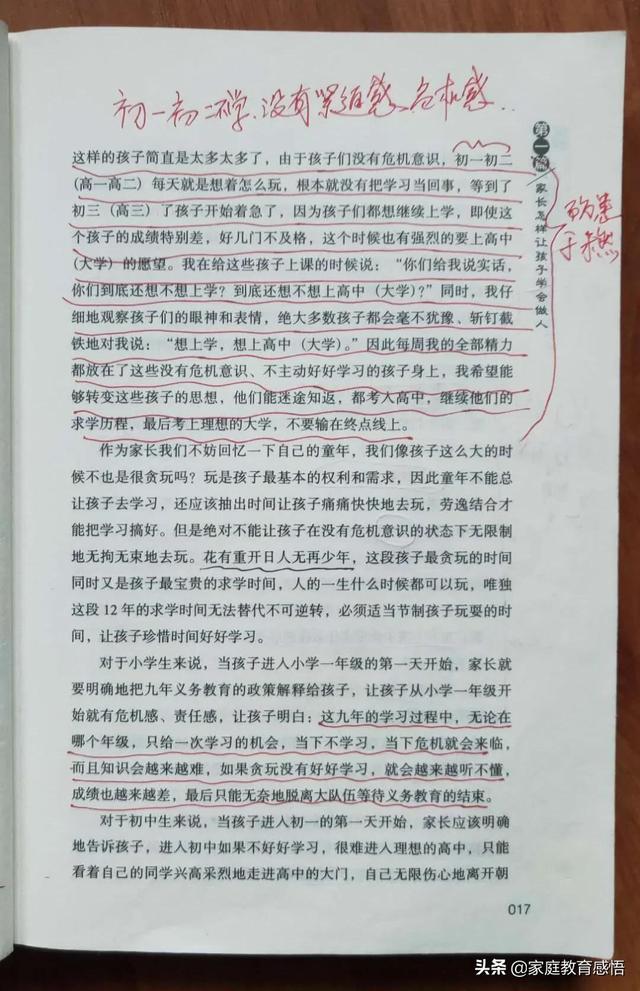 初一初二不学、没有紧迫感、危机感..
第一篇
家长怎样让孩子学会做人
防患
于未燃
这样的孩子简直是太多太多了，由于孩子们没有危机意识，初一初二
（高一高二）每天就是想着怎么玩，根本就没有把学习当回事，等到了
初三（高三）了孩子开始着急了，因为孩子们都想继续上学，即使这
个孩子的成绩特别差，好几门不及格，这个时候也有强烈的要上高中
（大学）的愿望。我在给这些孩子上课的时候说：“你们给我说实话，
你们到底还想不想上学？到底还想不想上高中（大学）？”同时，我仔
细地观察孩子们的眼神和表情，绝大多数孩子都会毫不犹豫、斩钉截
铁地对我说：“想上学，想上高中（大学）。”因此每周我的全部精力
都放在了这些没有危机意识、不主动好好学习的孩子身上，我希望能
够转变这些孩子的思想，他们能迷途知返，都考入高中，继续他们的
求学历程，最后考上理想的大学，不要输在终点线上。
作为家长我们不妨回忆一下自己的童年，我们像孩子这么大的时
候不也是很贪玩吗？玩是孩子最基本的权利和需求，因此童年不能总
让孩子去学习，还应该抽出时间让孩子痛痛快快地去玩，劳逸结合才
能把学习搞好。但是绝对不能让孩子在没有危机意识的状态下无限制
地无拘无束地去玩。花有重开日人无再少年，这段孩子最贪玩的时间
同时又是孩子最宝贵的求学时间，人的一生什么时候都可以玩，唯独
这段 12 年的求学时间无法替代不可逆转，必须适当节制孩子玩耍的时
间，让孩子珍惜时间好好学习。
对于小学生来说，当孩子进入小学一年级的第一天开始，家长就
要明确地把九年义务教育的政策解释给孩子，让孩子从小学一年级开
始就有危机感、责任感，让孩子明白：这九年的学习过程中，无论在
哪个年级，只给一次学习的机会，当下不学习，当下危机就会来临，
而且知识会越来越难，如果贪玩没有好好学习，就会越来越听不懂，
成绩也越来越差，最后只能无奈地脱离大队伍等待义务教育的结束。
对于初中生来说，当孩子进入初一的第一天开始，家长应该明确
地告诉孩子，进入初中如果不好好学习，很难进入理想的高中，只能
看着自己的同学兴高采烈地走进高中的大门，自己无限伤心地离开朝
017
头条 @家庭教育感悟